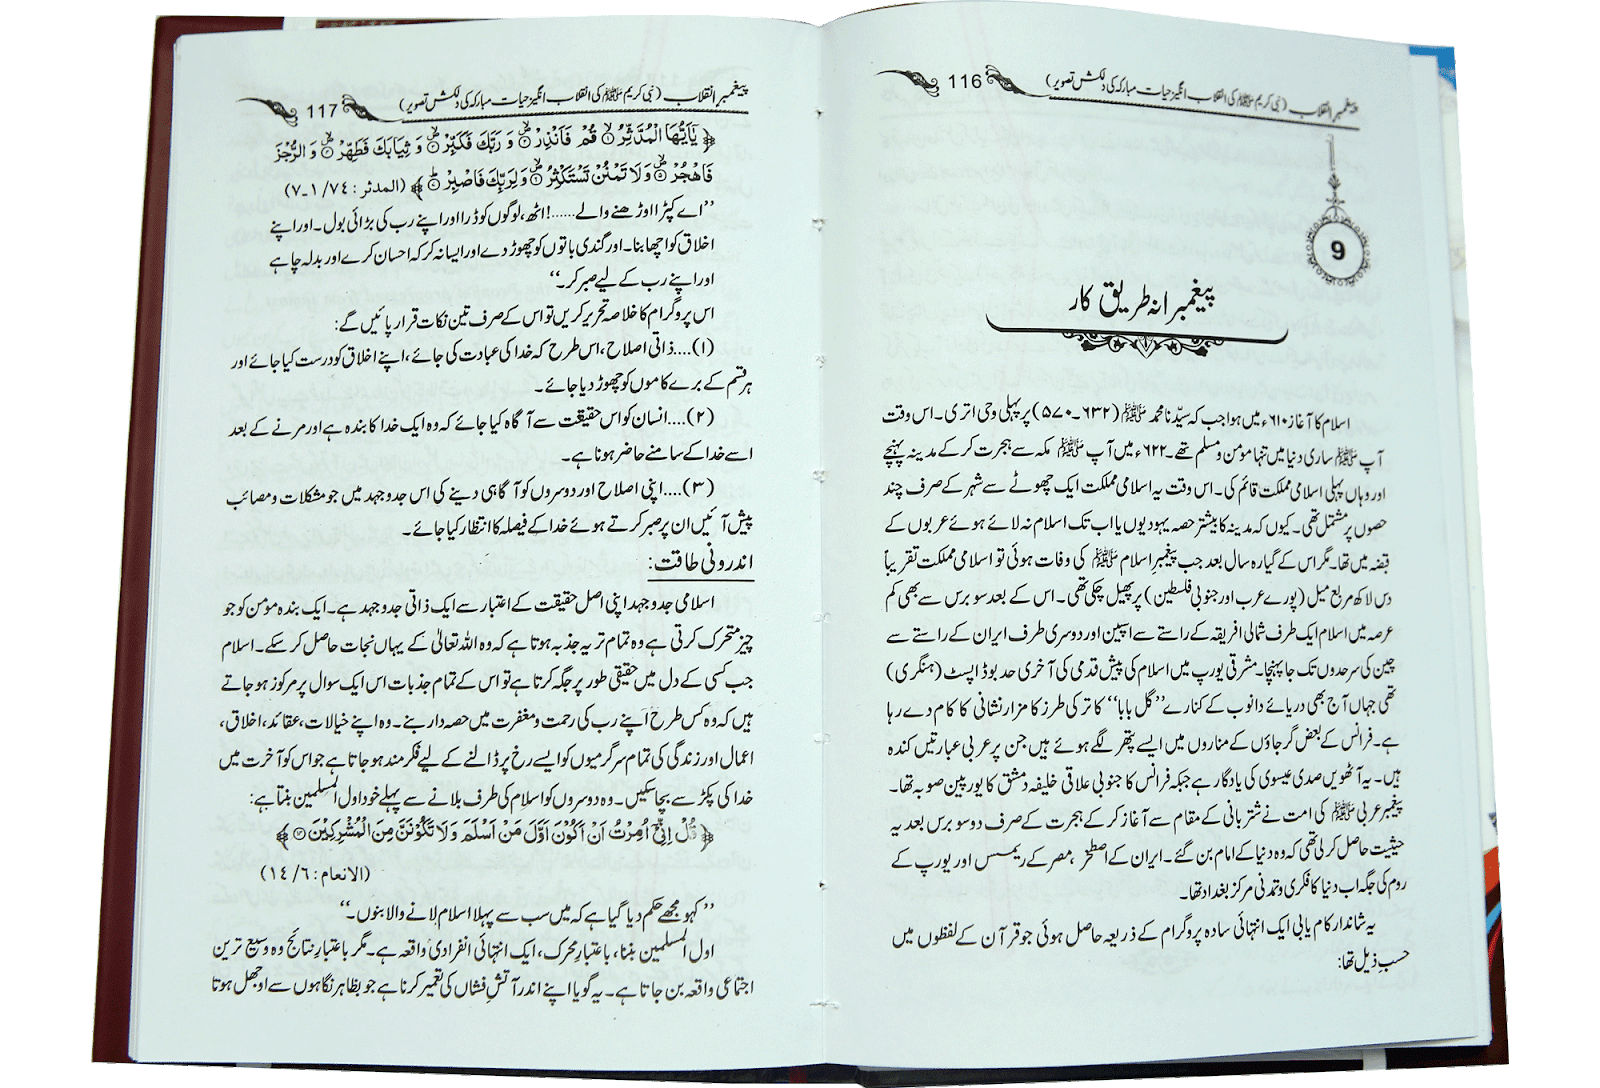 پیغمبرِ انقلاب (نبی کریم ﷺ کی انقلاب انگیز حیات مبارکہ کی دلکش تصویر) 116
9
پیغمبرانہ طریق کار
اسلام کا آغاز ۶۱۰ء میں ہوا جب کہ سیّدنا محمد ﷺ (۶۳۲۔۵۷۰) پر پہلی وحی اتری۔ اس وقت
آپ ﷺ ساری دنیا میں تنہا مؤمن و مسلم تھے۔ ۶۲۲ء میں آپ ﷺ مکہ سے ہجرت کر کے مدینہ پہنچے
اور وہاں پہلی اسلامی مملکت قائم کی۔ اس وقت یہ اسلامی مملکت ایک چھوٹے سے شہر کے صرف چند
حصوں پر مشتمل تھی۔ کیوں کہ مدینہ کا بیشتر حصہ یہودیوں یا اب تک اسلام نہ لائے ہوئے عربوں کے
قبضہ میں تھا۔ مگر اس کے گیارہ سال بعد جب پیغمبرِ اسلام ﷺ کی وفات ہوئی تو اسلامی مملکت تقریباً
دس لاکھ مربع میل (پورے عرب اور جنوبی فلسطین) پر پھیل چکی تھی۔ اس کے بعد سو برس سے بھی کم
عرصہ میں اسلام ایک طرف شمالی افریقہ کے راستے سے اسپین اور دوسری طرف ایران کے راستے سے
چین کی سرحدوں تک جا پہنچا۔ مشرقی یورپ میں اسلام کی پیش قدمی کی آخری حد بوڈاپسٹ (ہنگری)
تھی جہاں آج بھی دریائے دانوب کے کنارے ’’گل بابا‘‘ کا ترکی طرز کا مزار نشانی کا کام دے رہا
ہے۔ فرانس کے بعض گرجاؤں کے مناروں میں ایسے پتھر لگے ہوئے ہیں جن پر عربی عبارتیں کندہ
ہیں۔ یہ آٹھویں صدی عیسوی کی یادگار ہے جبکہ فرانس کا جنوبی علاقہ خلیفہ دمشق کا یورپین صوبہ تھا۔
پیغمبر عربی ﷺ کی امت نے شتر بانی کے مقام سے آغاز کر کے ہجرت کے صرف دو سو برس بعد یہ
حیثیت حاصل کر لی تھی کہ وہ دنیا کے امام بن گئے۔ ایران کے اصطخر، مصر کے ریمسس اور یورپ کے
روم کی جگہ اب دنیا کا فکری و تمدنی مرکز بغداد تھا۔
یہ شاندار کامیابی ایک انتہائی سادہ پروگرام کے ذریعہ حاصل ہوئی جو قرآن کے لفظوں میں
حسب ذیل تھا:
پیغمبرِ انقلاب (نبی کریم ﷺ کی انقلاب انگیز حیات مبارکہ کی دلکش تصویر) 117
﴿یٰٓاَیُّهَا الْمُدَّثِّرُ ۱ قُمْ فَاَنْذِرْ ۲ وَ رَبَّكَ فَكَبِّرْ ۳ وَ ثِیَابَكَ فَطَهِّرْ ۴ وَ الرُّجْزَ
فَاهْجُرْ ۵ وَ لَا تَمْنُنْ تَسْتَكْثِرُ ۶ وَ لِرَبِّكَ فَاصْبِرْ ۷﴾ (المدثر: ۷۴/ ۱۔۷)
’’اے کپڑا اوڑھنے والے......! اٹھ، لوگوں کو ڈرا اور اپنے رب کی بڑائی بول۔ اور اپنے
اخلاق کو اچھا بنا۔ اور گندی باتوں کو چھوڑ دے اور ایسا نہ کر کہ احسان کرے اور بدلہ چاہے
اور اپنے رب کے لیے صبر کر۔‘‘
اس پروگرام کا خلاصہ تحریر کریں تو اس کے صرف تین نکات قرار پائیں گے:
(۱)....ذاتی اصلاح، اس طرح کہ خدا کی عبادت کی جائے، اپنے اخلاق کو درست کیا جائے اور
ہر قسم کے برے کاموں کو چھوڑ دیا جائے۔
(۲)....انسان کو اس حقیقت سے آگاہ کیا جائے کہ وہ ایک خدا کا بندہ ہے اور مرنے کے بعد
اسے خدا کے سامنے حاضر ہونا ہے۔
(۳)....اپنی اصلاح اور دوسروں کو آگاہی دینے کی اس جدوجہد میں جو مشکلات و مصائب
پیش آئیں ان پر صبر کرتے ہوئے خدا کے فیصلہ کا انتظار کیا جائے۔
اندرونی طاقت:
اسلامی جدوجہد اپنی اصل حقیقت کے اعتبار سے ایک ذاتی جدوجہد ہے۔ ایک بندہ مؤمن کو جو
چیز متحرک کرتی ہے وہ تمام تر یہ جذبہ ہوتا ہے کہ وہ اللہ تعالیٰ کے یہاں نجات حاصل کر سکے۔ اسلام
جب کسی کے دل میں حقیقی طور پر جگہ کرتا ہے تو اس کے تمام جذبات اس ایک سوال پر مرکوز ہو جاتے
ہیں کہ وہ کس طرح اپنے رب کی رحمت و مغفرت میں حصہ دار بنے۔ وہ اپنے خیالات، عقائد، اخلاق،
اعمال اور زندگی کی تمام سرگرمیوں کو ایسے رخ پر ڈالنے کے لیے فکر مند ہو جاتا ہے جو اس کو آخرت میں
خدا کی پکڑ سے بچا سکیں۔ وہ دوسروں کو اسلام کی طرف بلانے سے پہلے خود اول المسلمین بنتا ہے:
﴿قُلْ اِنِّیْٓ اُمِرْتُ اَنْ اَكُوْنَ اَوَّلَ مَنْ اَسْلَمَ وَ لَا تَكُوْنَنَّ مِنَ الْمُشْرِكِیْنَ ۱۴﴾
(الانعام: ۱۴/۶)
’’کہو مجھے حکم دیا گیا ہے کہ میں سب سے پہلا اسلام لانے والا بنوں۔‘‘
اول المسلمین بننا، باعتبارِ محرک، ایک انتہائی انفرادی واقعہ ہے۔ مگر باعتبارِ نتائج وہ وسیع ترین
اجتماعی واقعہ بن جاتا ہے۔ یہ گویا اپنے اندر آتش فشاں کی تعمیر کرنا ہے جو بظاہر نگاہوں سے اوجھل ہوتا